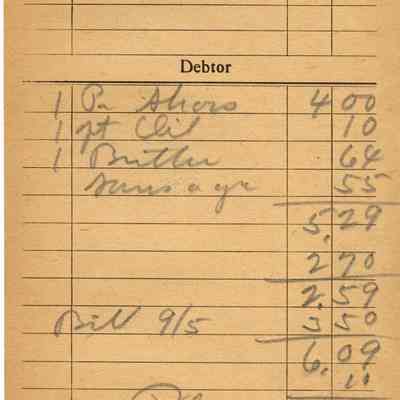 Debtor
1 Pr Shoes 4 00
1 pt Oil 10
1 Butter 64
Sausage 55
5.29
2 70
2.59
Bill 9/5 3 50
6.09
11